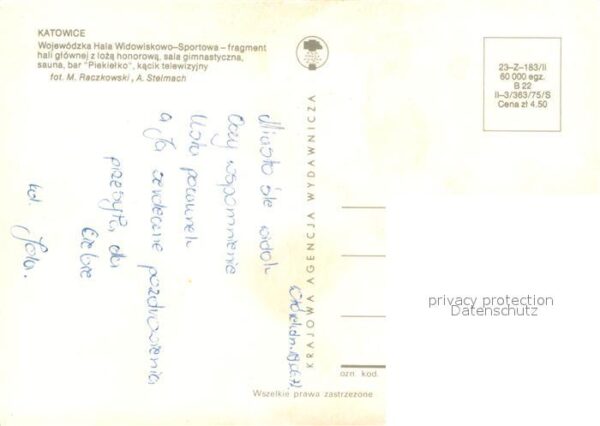 KATOWICE
Wojewódzka Hala Widowiskowo-Sportowa – fragment
hali głównej z lożą honorową, sala gimnastyczna,
sauna, bar "Piekiełko", kącik telewizyjny
fot. M. Raczkowski, A. Stelmach
23-Z-183/II
60 000 egz.
B 22
II-3/363/75/S
Cena zł 4.50
KRAJOWA AGENCJA WYDAWNICZA
Miasto śle widok
Oczy wspomnienie
Usta pocałunek
a Ja serdeczne pozdrowienia
przesyła dla
Ciebie
Jola.
ozn kod.
Wszelkie prawa zastrzeżone
privacy protection
Datenschutz